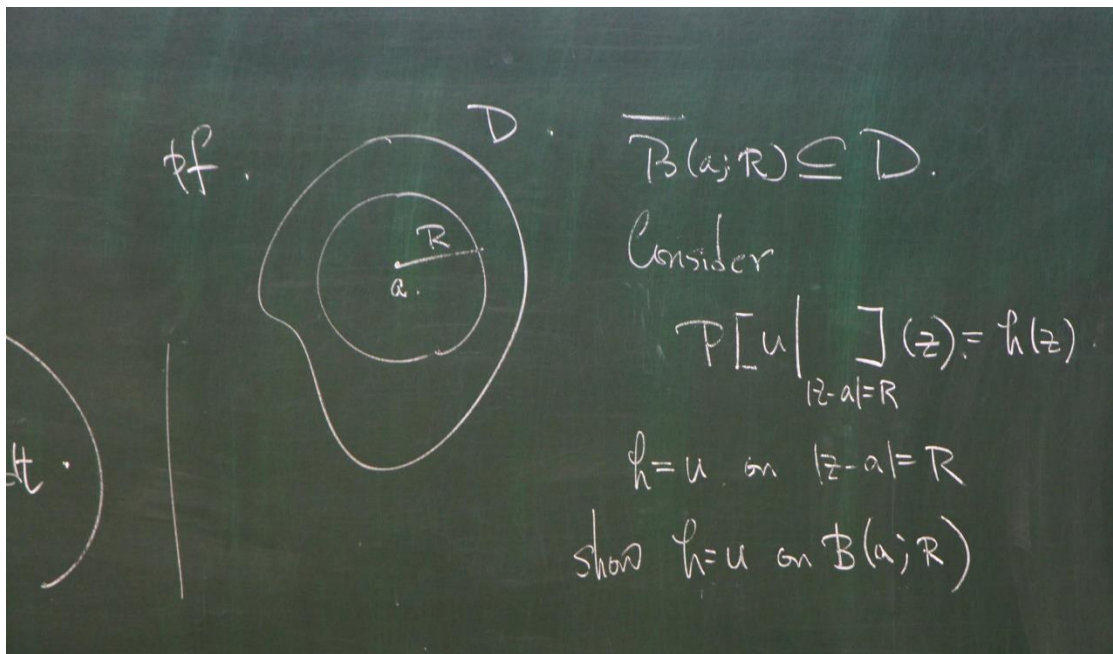 pf.
D.
R
a.
dt.
B̅(a;R) ⊆ D.
Consider
P[u| ](z) = h(z).
|z-a|=R
h=u on |z-a|=R
show h=u on B(a;R)